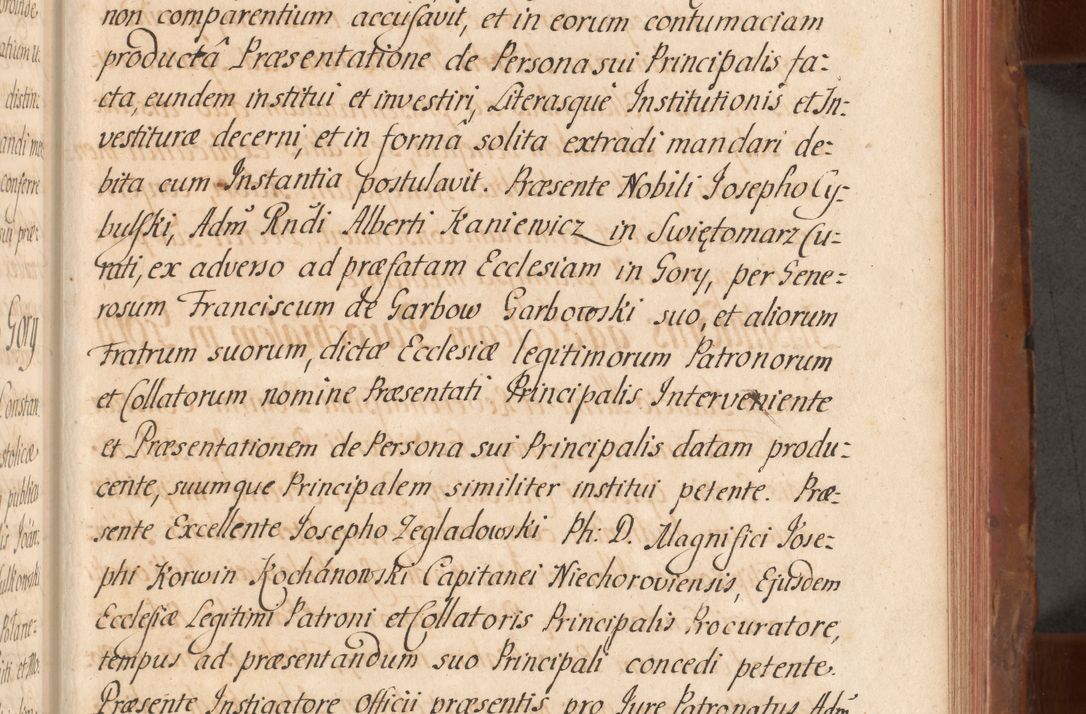 non comparentium accusavit, et in eorum contumaciam
productâ Præsentatione de Persona sui Principalis fa=
cta, eundem institui et investiri, Literasque Institutionis et In=
vestituræ decerni, et in formâ solita extradi mandari de=
bita cum Instantia postulavit. Præsente Nobili Josepho Cy=
bulski, Adm̃ Rñdi Alberti Kaniewicz in Swiętomarz Cu=
rati, ex adverso ad præfatam Ecclesiam in Gory, per Gene=
rosum Franciscum de Garbow Garbowski suo, et aliorum
Fratrum suorum, dictæ Ecclesiæ legitimorum Patronorum
et Collatorum nomine Præsentati Principalis Interveniente
et Præsentationem de Persona sui Principalis datam produ=
cente, suumque Principalem similiter institui petente. Præ=
sente Excellente Josepho Zegladowski Ph: D. Magnifici Jose=
phi Korwin Kochánowski Capitanei Niechoroviensis, Ejusdem
Ecclesiæ Legitimi Patroni et Collatoris Principalis Procuratore,
tempus ad præsentandum suo Principali concedi petente.
Præsente Instigatore Officii præsentis pro Jure Patronatus Adm̃